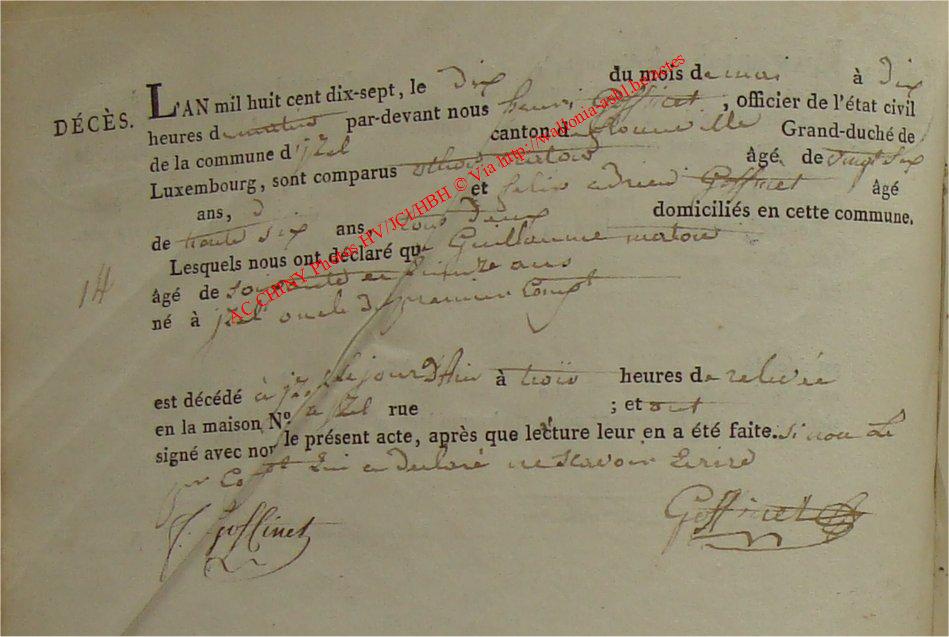 DÉCÈS. L'AN mil huit cent dix-sept, le dix du mois de mai à dix
heures du matin par-devant nous henri Goffinet, officier de l'état civil
de la commune d'jzel canton de florenville Grand-duché de
Luxembourg, sont comparus matou âgé de vingt six
ans, et felix adrien Goffinet âgé
de trente six ans, tous deux domiciliés en cette commune.
Lesquels nous ont déclaré que Guillaume matou
14
âgé de soixante et quinze ans
né à jzel oncle du premier Compt
est décédé à jzel le jourd'hui à trois heures de relevée
en la maison N.º a jzel rue ; et ont
signé avec nous le présent acte, après que lecture leur en a été faite. si non le
per Compt qui a declaré ne scavoir Ecrire
f. Goffinet Goffinet
AC CHINY Photos HV/JCL/HBH © Via http://wallonia-asbl.be/actes